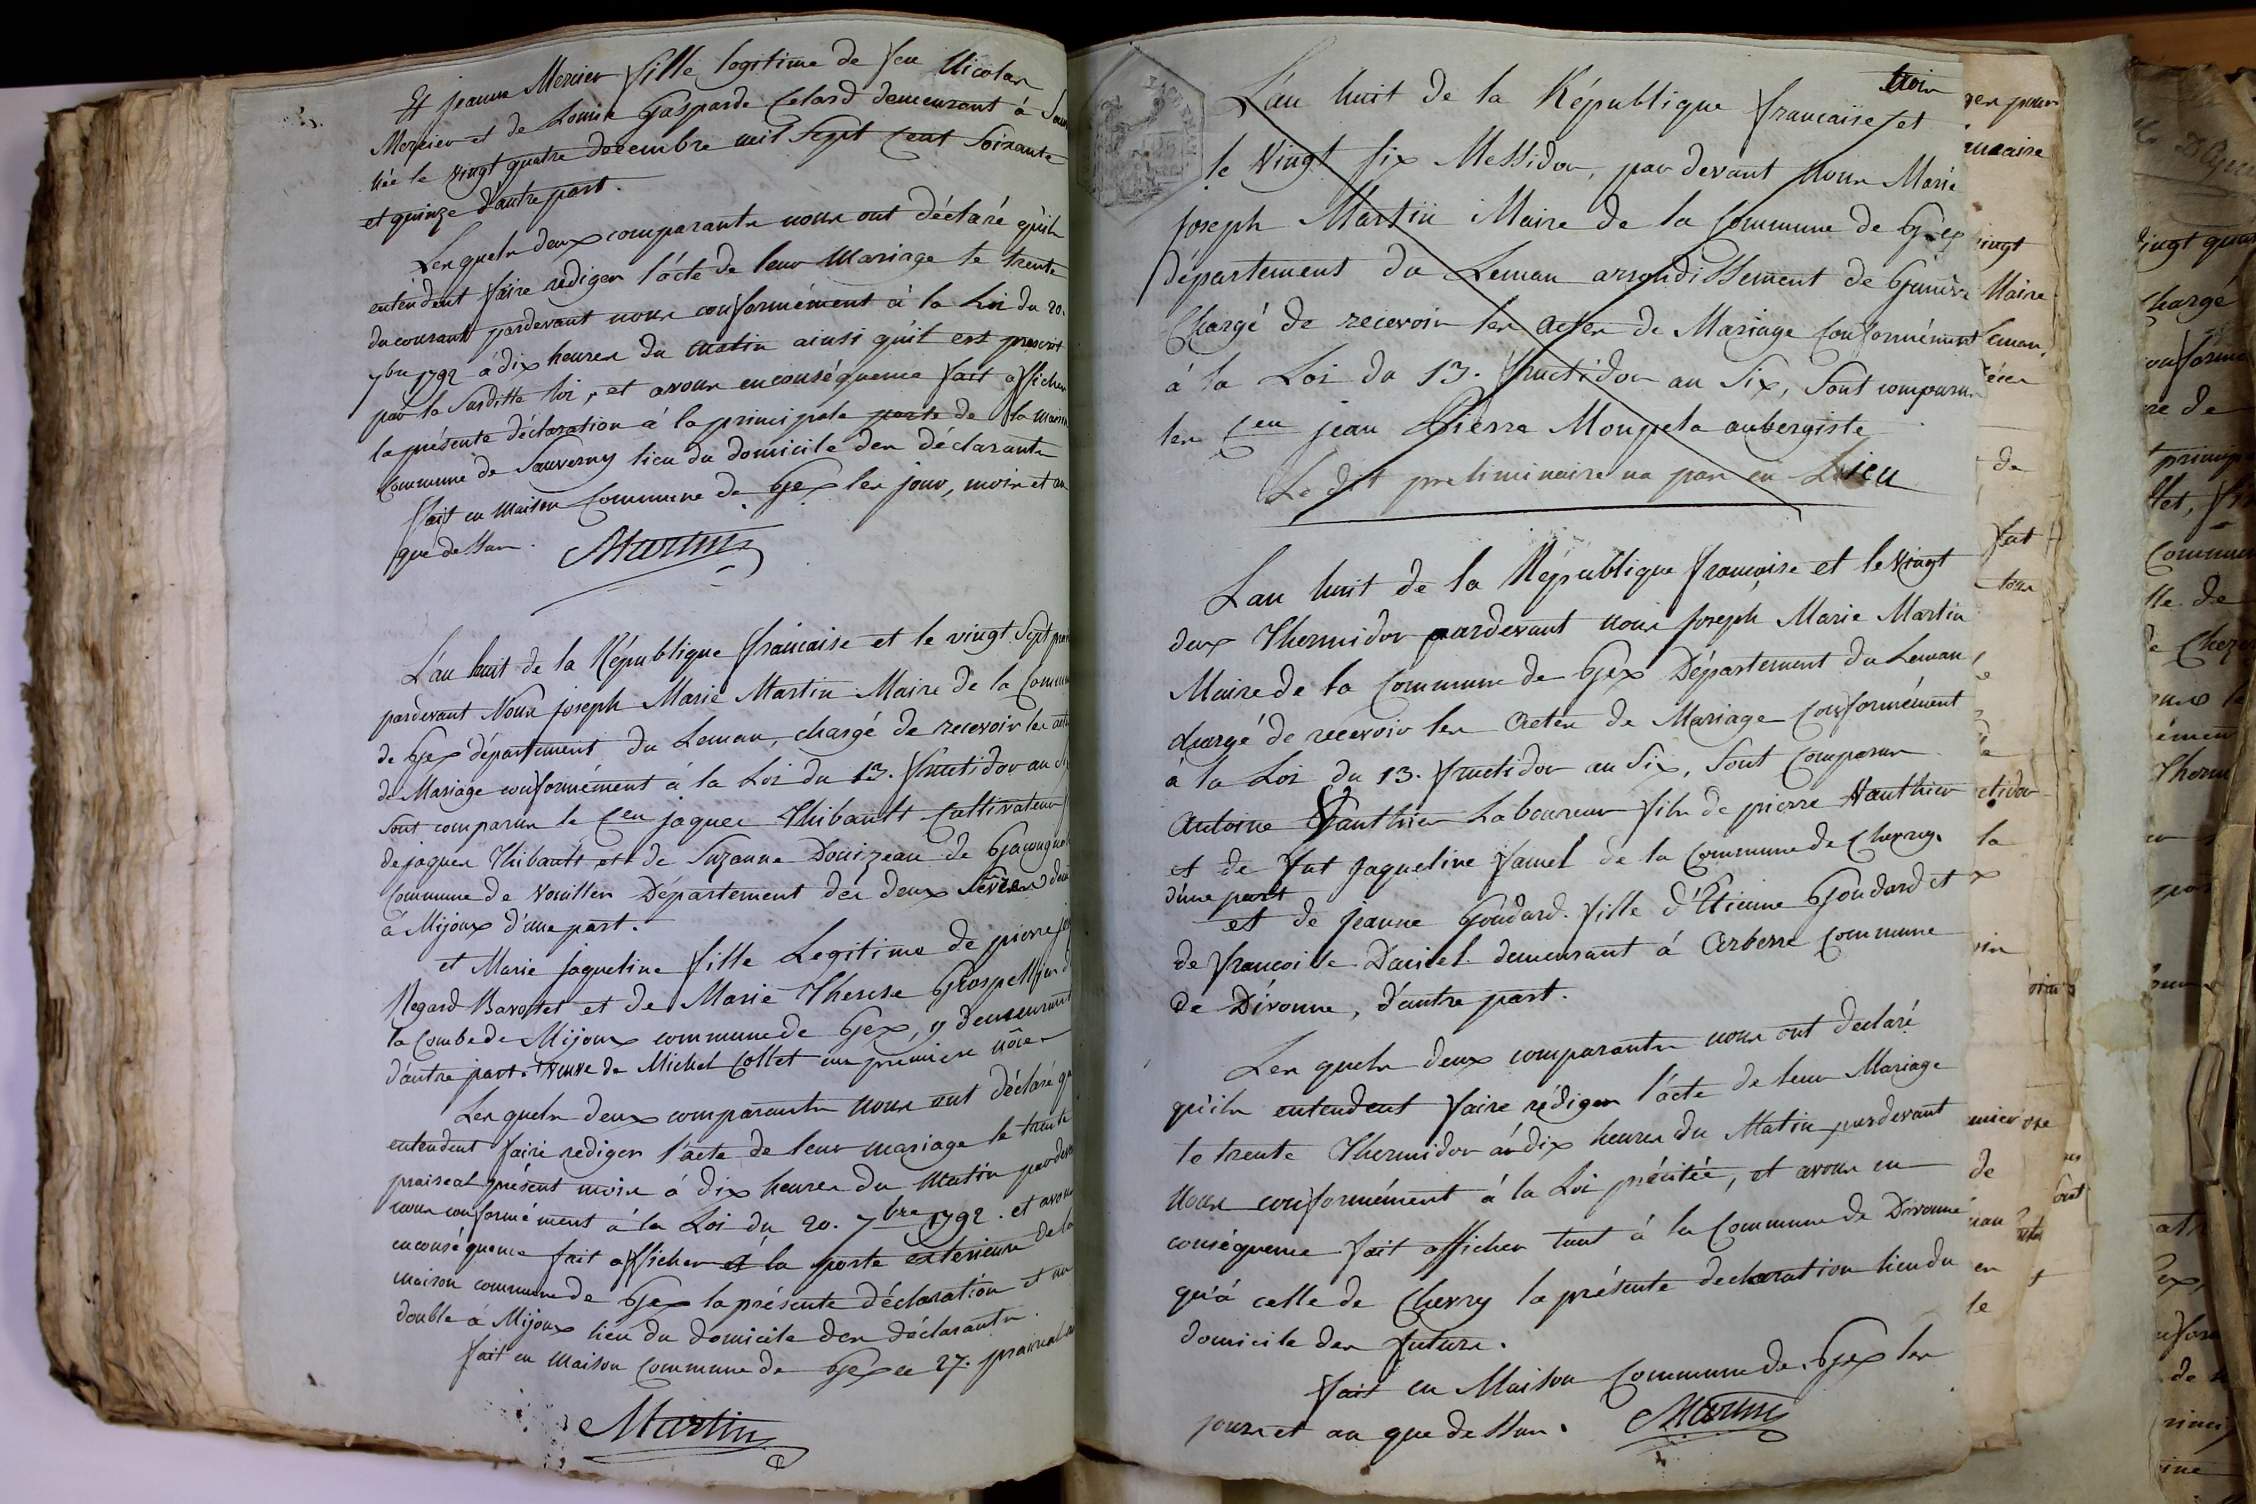 Et jeanne Mercier fille legitime de feu Nicolas
Mercier et de Louise Gasparde Celard demeurant à
née le vingt quatre decembre mil sept cent soixante
et quinze d'autre part.
Lesquels deux comparants nous ont déclaré qu'ils
entendent faire rediger l'acte de leur Mariage le trente
du courant pardevant nous conformément à la Loi du 20.
7bre 1792 à dix heures du matin ainsi qu'il est prescrit
par la susditte loi, et avons enconséquence fait afficher
la présente déclaration à la principale porte de la maison
Commune de Sauverny lieu du domicile des déclarants
fait en maison Commune de Gex les jour, mois et an
que dessus. Martin
L'an huit de la République française et le vingt sept
pardevant Nous joseph Marie Martin Maire de la Commune
de Gex département du Leman, chargé de recevoir les actes
de Mariage conformément à la Loi du 13. fructidor an Six
sont comparus le Cen jaques Thibault Cultivateur
de jaques Thibault et de Suzanne Douizeau de
Commune de Vouillers Département des deux Sèvres
à Mijoux d'une part.
et Marie Jaqueline fille Legitime de pierre
Regard Barottet et de Marie Therese Grospellier
la Combe de Mijoux commune de Gex, y demeurant
d'autre part. veuve de Michel Collet en première nôces
Lesquels deux comparants nous ont déclaré
entendent faire rediger l'acte de leur mariage le trente
praireal présent mois à dix heures du matin
nous conformément à la Loi du 20. 7bre 1792. et avons
enconséquence fait afficher à la porte exterieure de la
maison commune de Gex la présente déclaration et un
double à Mijoux lieu du domicile des déclarants.
fait en maison commune de Gex ce 27. prairial
Martin
trois
L'an huit de la République française et
le vingt six Messidor, par devant Nous Marie
Joseph Martin Maire de la Commune de Gex
département du Leman arrondissement de Genève
Chargé de recevoir les actes de Mariage Conformément
à la Loi du 13. fructidor an Six, sont comparus
les Cen jean Pierre Mougela aubergiste
Le dit preliminaire na pas eu Lieu
L'an huit de la République française et le vingt
deux Thermidor pardevant nous Joseph Marie Martin
Maire de la Commune de Gex Département du Leman,
chargé de recevoir les actes de Mariage Conformément
à la Loi du 13. fructidor an Six, sont comparus
Antoine Gauthier Laboureur fils de pierre Gauthier
et de fut Jaqueline famel de la Commune de Chevry.
d'une part
et de jeanne Goudard. fille d'Etienne Goudard et
de françoise Daniel demeurant à Arberre Commune
de Divonne, d'autre part.
Les quels deux comparants nous ont declaré
qu'ils entendent faire rédiger l'acte de leur Mariage
le trente Thermidor à dix heures du Matin pardevant
nous conformément à la Loi précitée, et avons en
conséquence fait afficher tant à la Commune de Divonne
qu'à celle de Chevry la présente declaration lieu du
domicile des futurs.
fait en Maison Commune de Gex les
jours et an que dessus. Martin